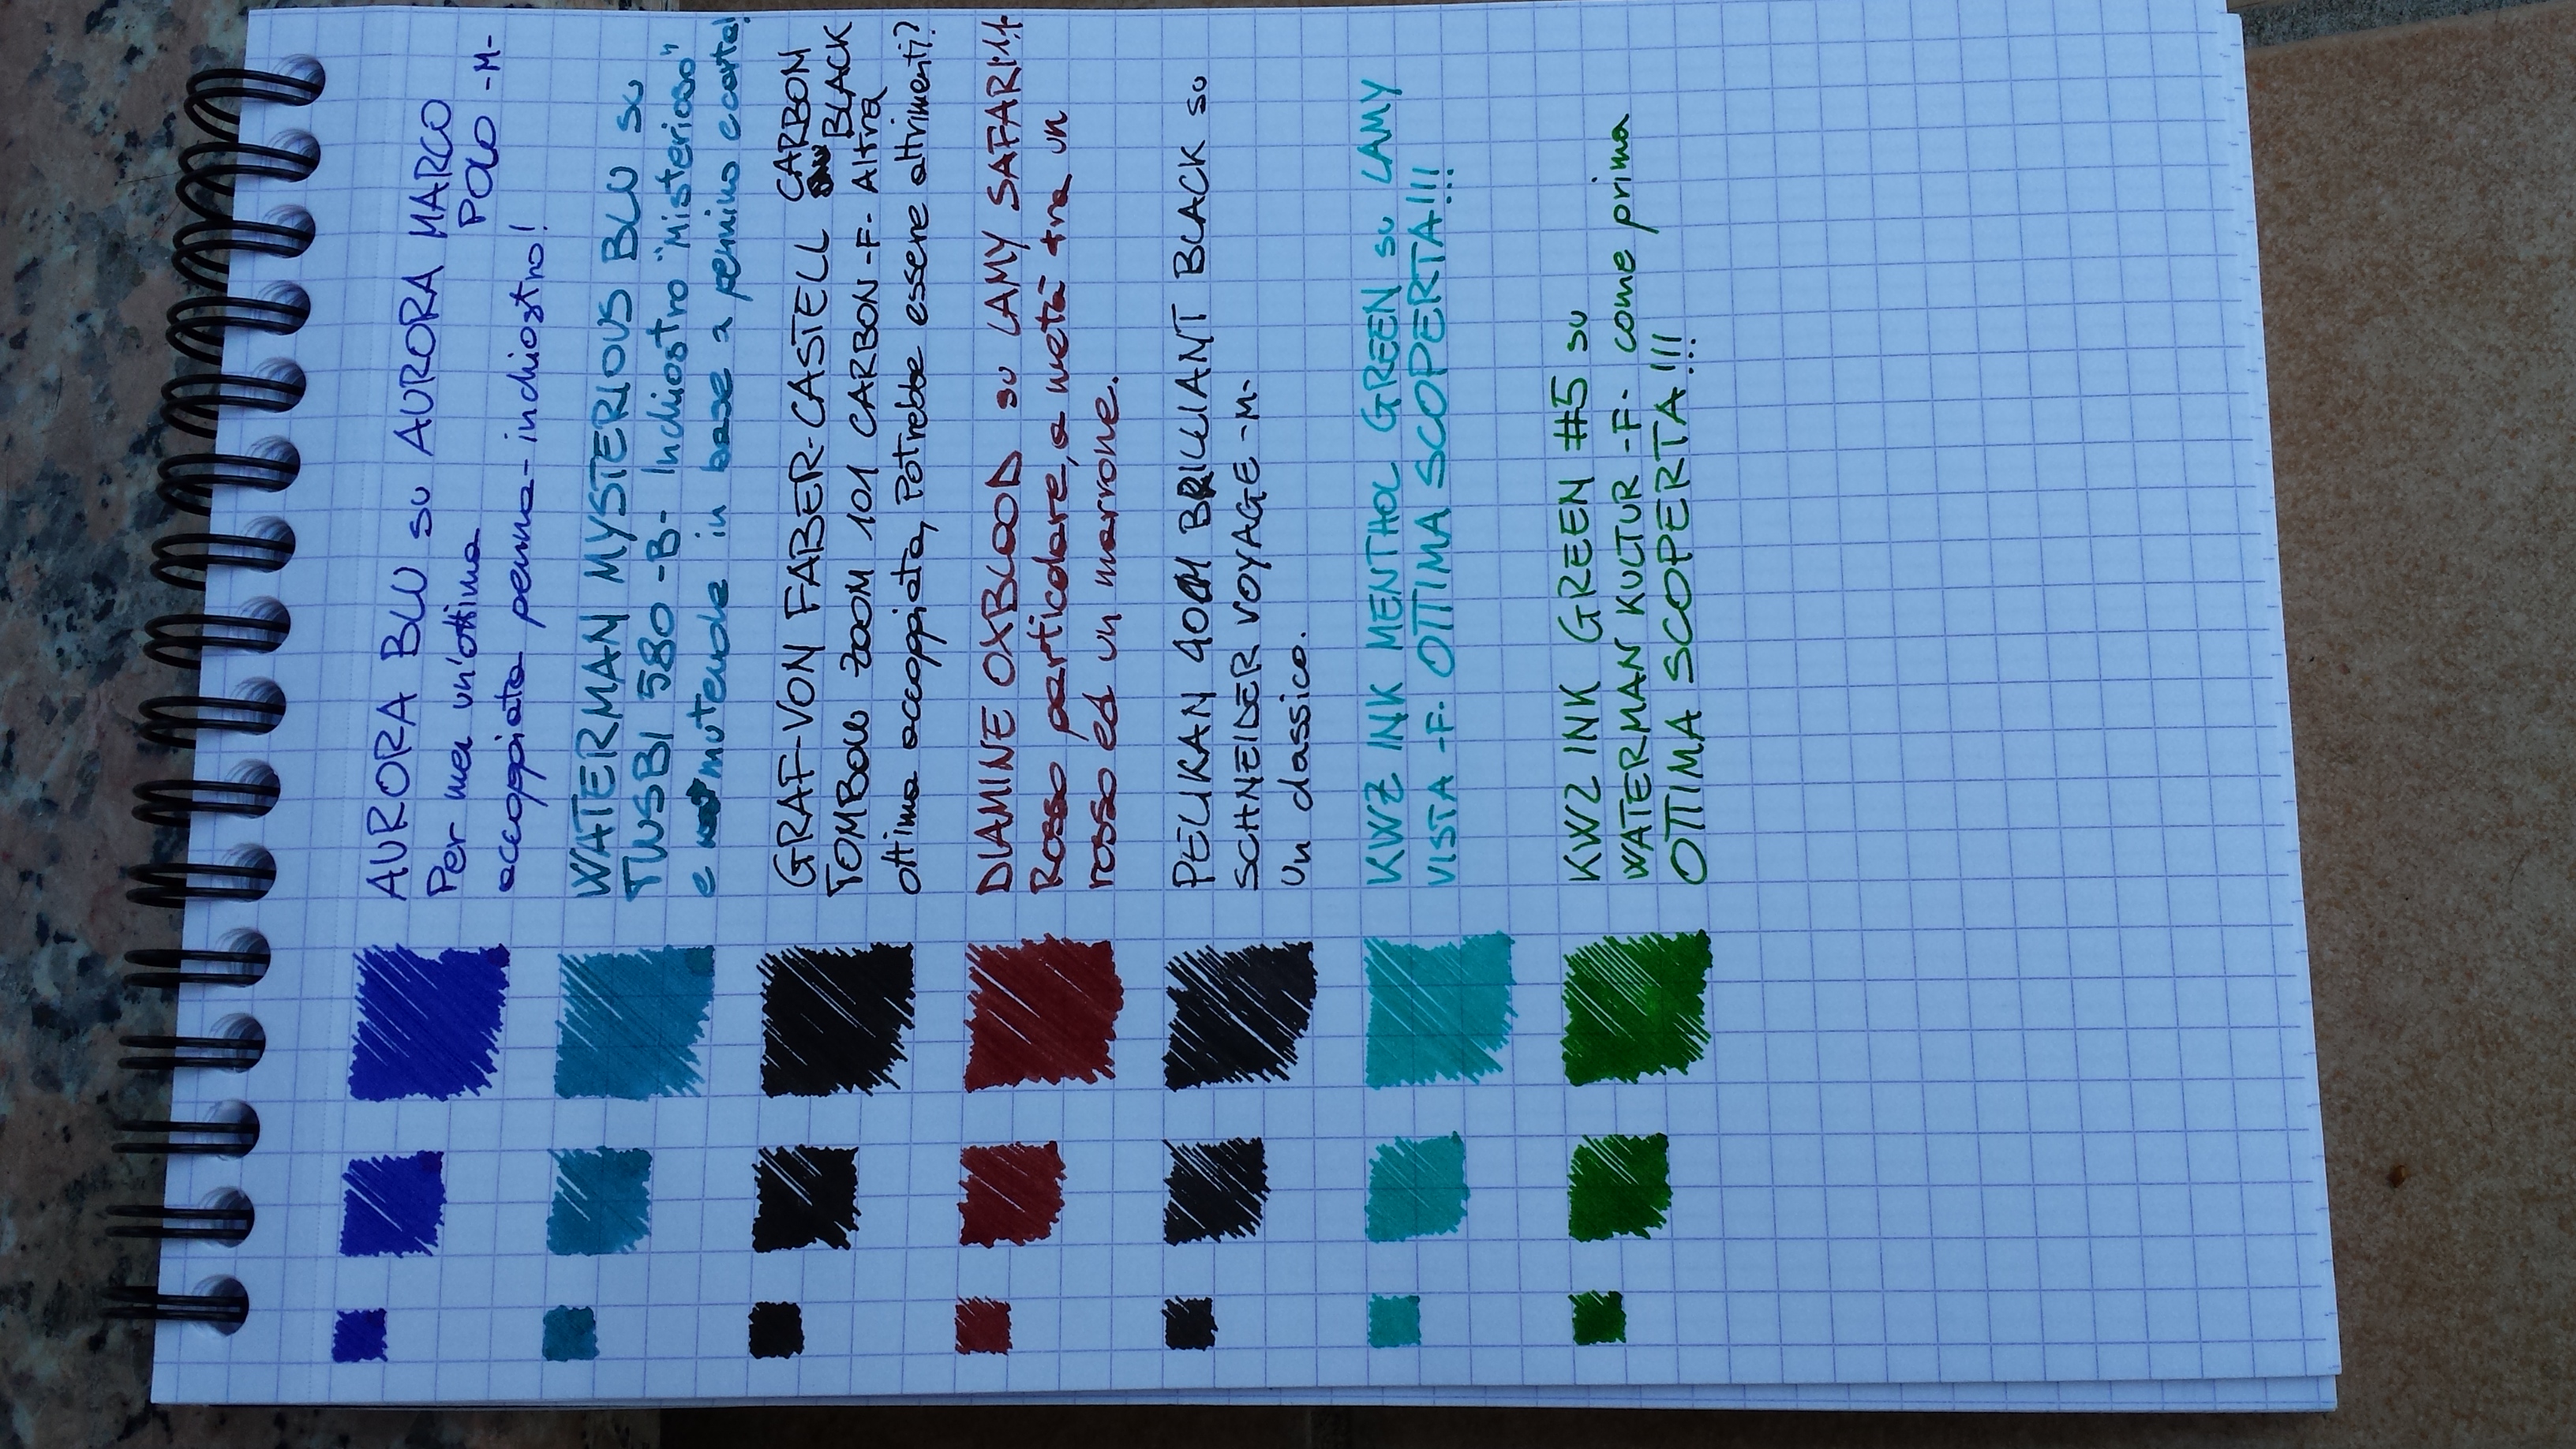 AURORA BLU su AURORA MARCO
POLO -M-
Per me un'ottima
accoppiata penna-inchiostro!
WATERMAN MYSTERIOUS BLU su
TWSBI 580 -B- Inchiostro "Misterioso"
e mutevole in base a pennino e carta!
GRAF-VON FABER-CASTELL CARBON
BLACK
TOMBOW ZOOM 101 CARBON -F- Altra
ottima accoppiata, Potrebbe essere altrimenti?
DIAMINE OXBLOOD su LAMY SAFARI 1.1
Rosso particolare, a metà tra un
rosso ed un marrone.
PELIKAN 4001 BRILLIANT BLACK su
SCHNEIDER VOYAGE -M-
Un classico.
KWZ INK MENTHOL GREEN su LAMY
VISTA -F- OTTIMA SCOPERTA!!!
KWZ INK GREEN #5 su
WATERMAN KULTUR -F- come prima
OTTIMA SCOPERTA!!!